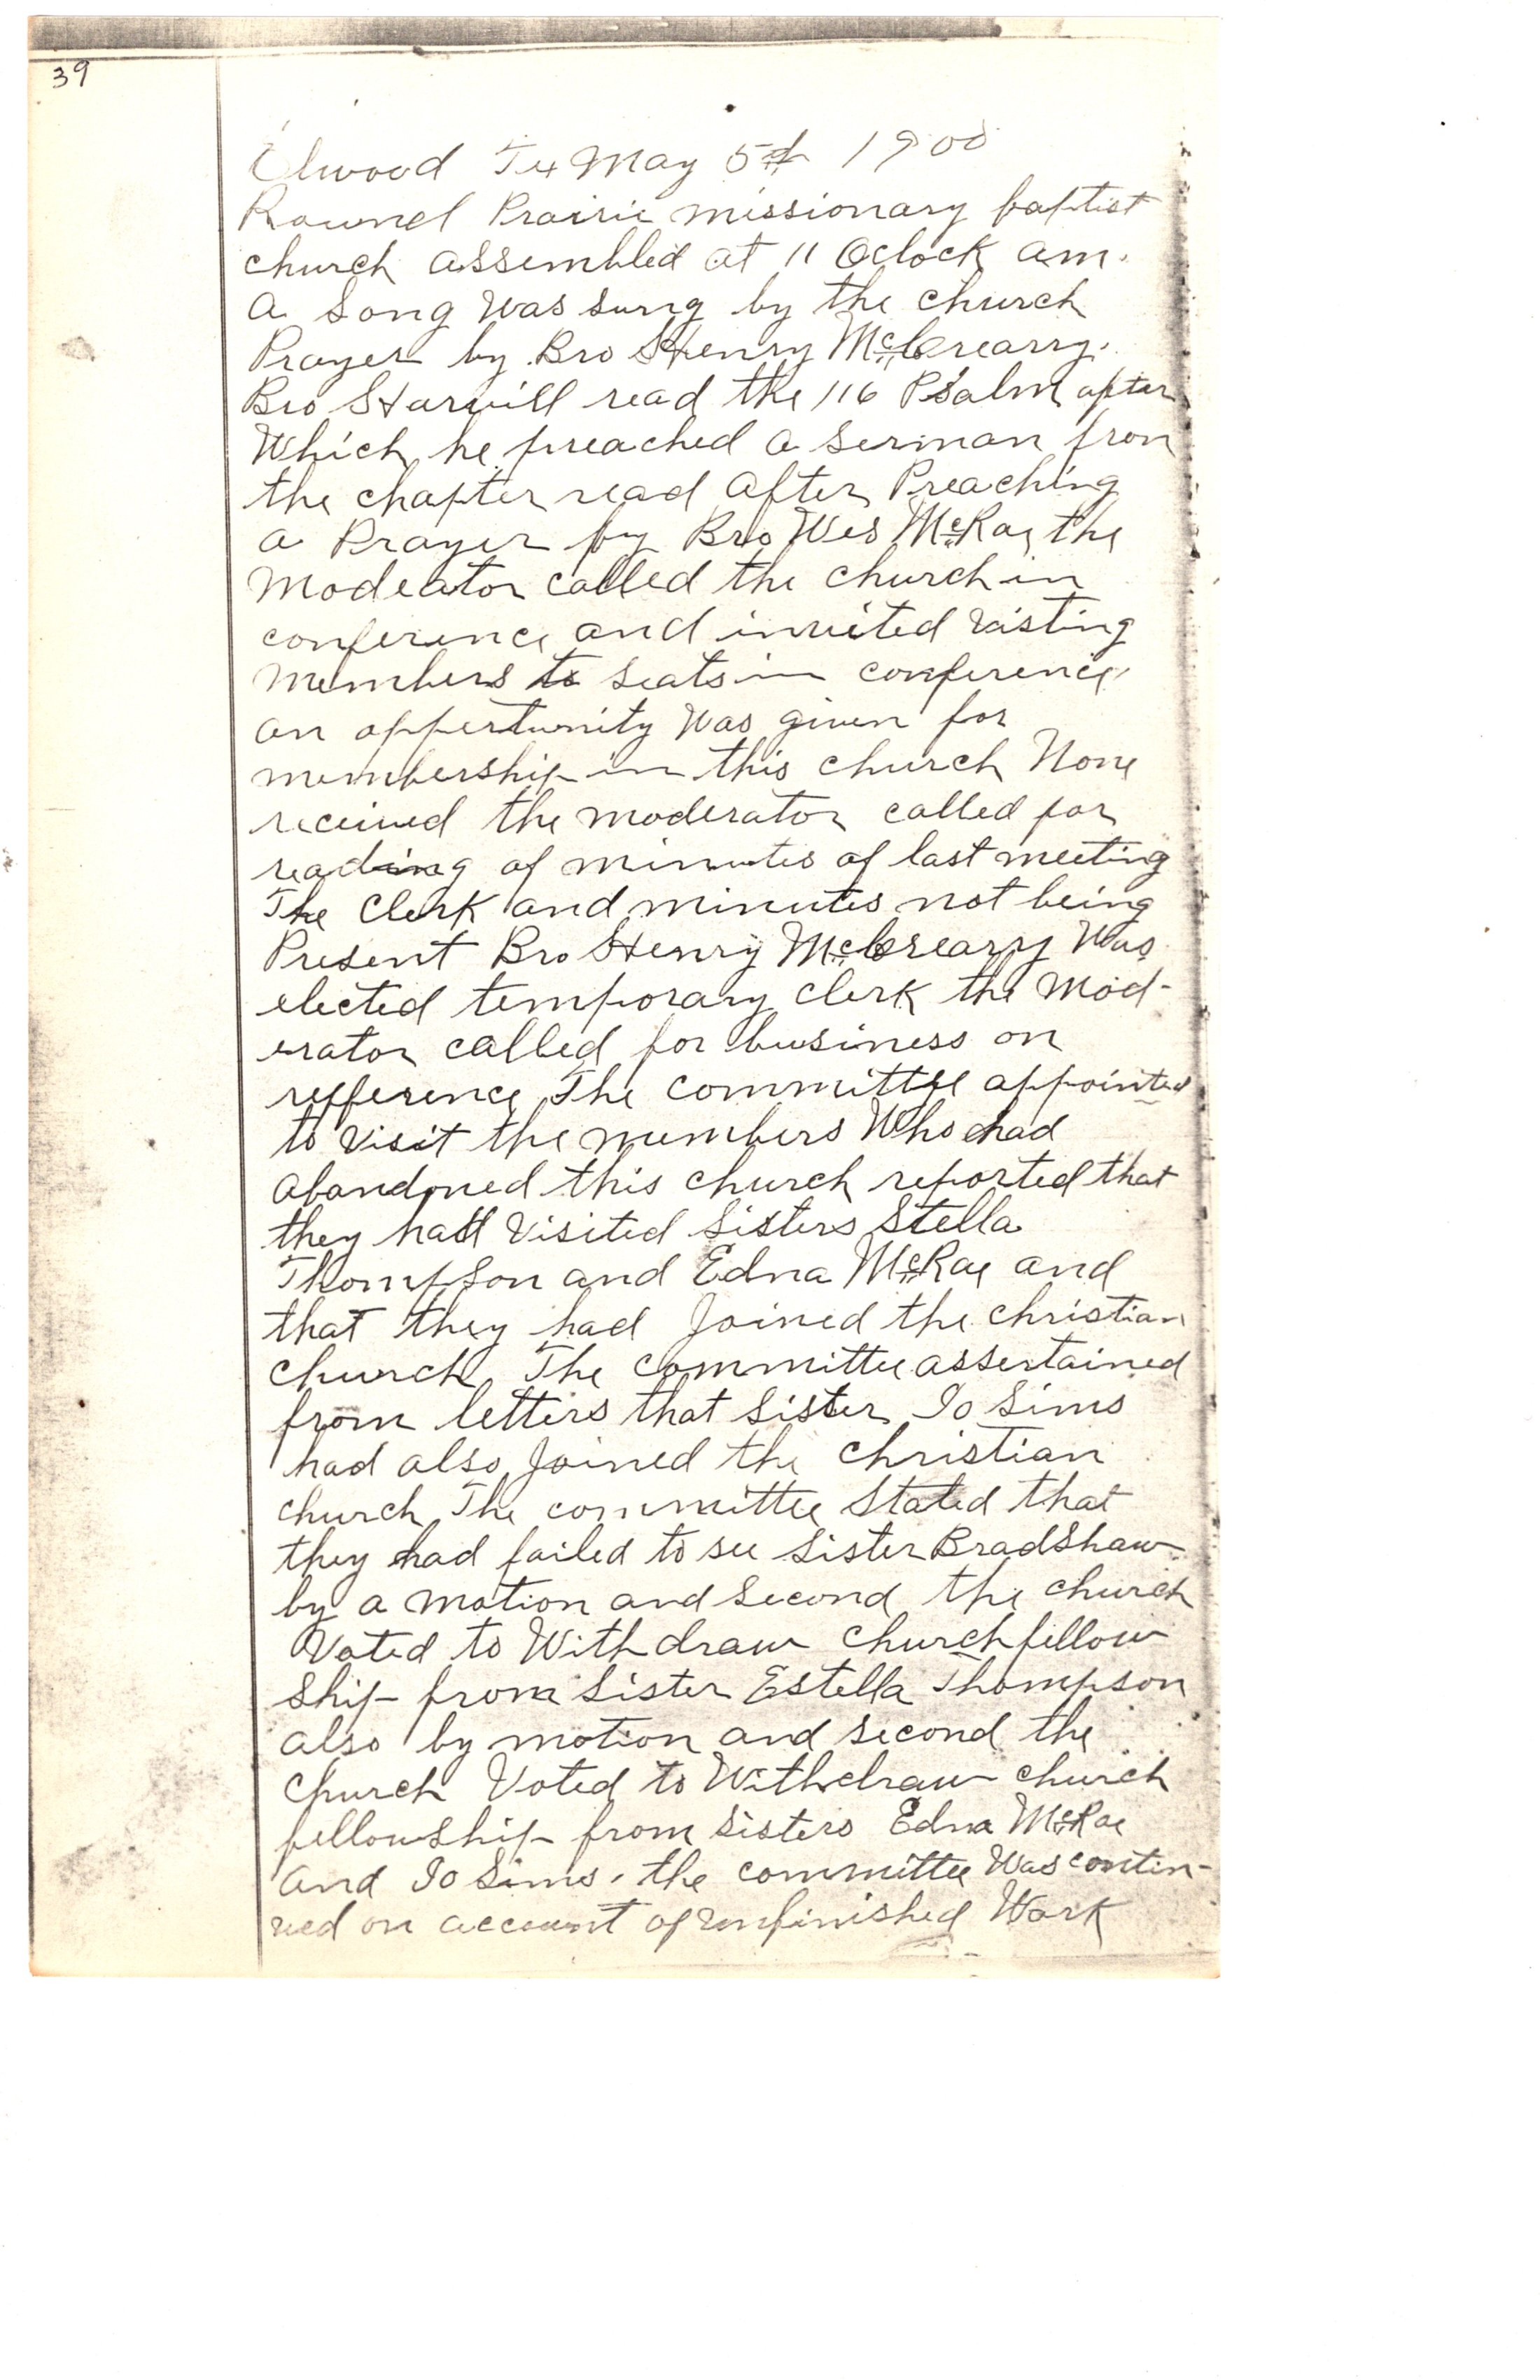 39
Elwood Tex May 5th 1900
Round Prairie missionary baptist
church assembled at 11 Oclock am.
a song Was sung by the church
Prayer by Bro Henry McCrearry.
Bro Harvill read the 116 Psalm after
Which he preached a serman from
the chapter read after Preaching
a Prayer by Bro Wes McRae the
modeator called the church in
conference and invited Visting
members to seats in conference
an oppertunity Was given for
membership in this church None
received the moderator called for
reading of minutes of last meeting
The Clerk and minutes not being
Present Bro Henry McCrearry Was
elected temporary clerk the Mod-
erator called for business on
refference The committee appointed
to Visit the members Who had
abandoned this church reported that
they had Visited Sisters Stella
Thompson and Edna McRae and
that they had Joined the christian
church The committee assertained
from letters that sister Io Sims
had also Joined the christian
church The committee Stated that
they had failed to see Sister BradShaw
by a motion and second the church
Voted to Withdraw church fellow
Ship from Sister Estella Thompson
also by motion and second the
church Voted to Withdraw church
fellowship from Sisters Edna McRae
and Io Sims. the committee Was contin-
ued on account of unfinished Work